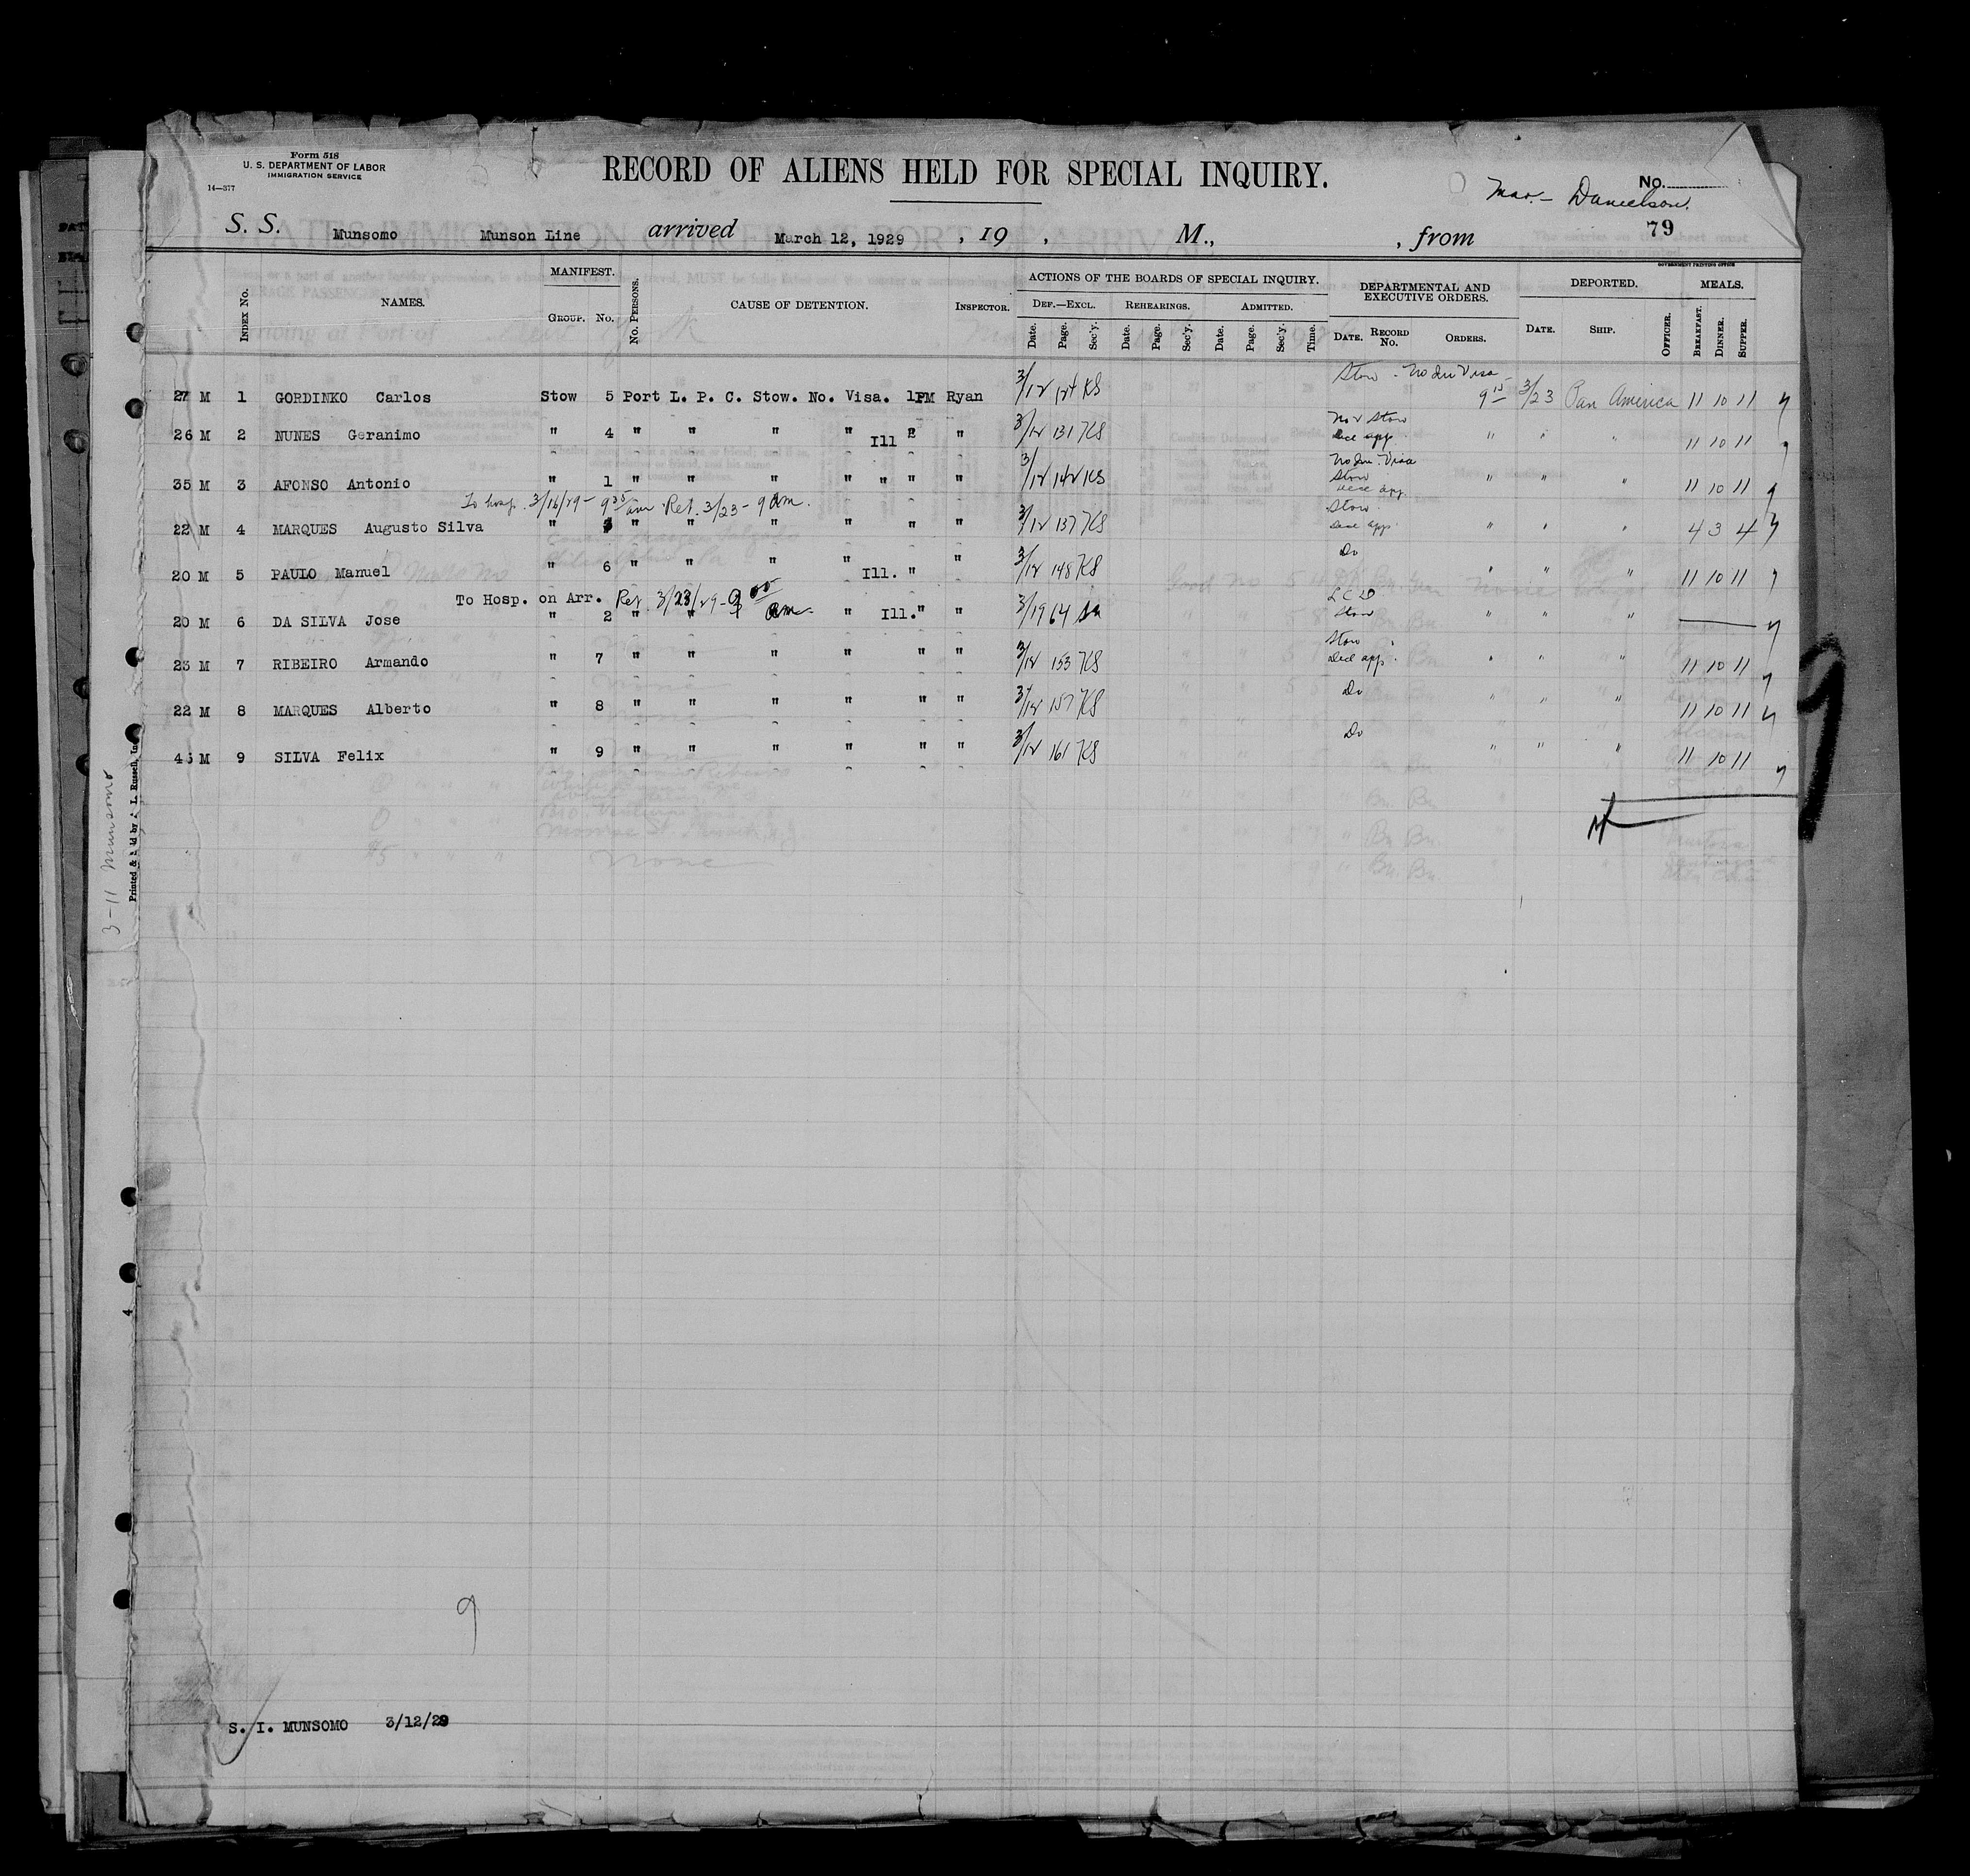 Form 518
U. S. DEPARTMENT OF LABOR
IMMIGRATION SERVICE
14—377
RECORD OF ALIENS HELD FOR SPECIAL INQUIRY.
No.
Danielson.
79
S. S. Munsomo Munson Line arrived March 12, 1929 , 19 , M., , from
GOVERNMENT PRINTING OFFICE
INDEX No. NAMES. MANIFEST. GROUP. No. No. PERSONS. CAUSE OF DETENTION. INSPECTOR. ACTIONS OF THE BOARDS OF SPECIAL INQUIRY. DEPARTMENTAL AND EXECUTIVE ORDERS. DEPORTED. MEALS.
DEF.—EXCL. REHEARINGS. ADMITTED.
Date. Page. Sec'y. Date. Page. Sec'y. Date. Page. Sec'y. Time. DATE. RECORD No. ORDERS. DATE. SHIP. OFFICER. BREAKFAST. DINNER. SUPPER.
27 M 1 GORDINKO Carlos Stow 5 Port L. P. C. Stow. No. Visa. 1PM Ryan 3/12 124 KS Stow - No Im Visa 9 15 3/23 Pan America 11 10 11
26 M 2 NUNES Geranimo " 4 " " " " Ill " " 3/12 131 KS No v Stow Decl app. " " " 11 10 11
35 M 3 AFONSO Antonio " 1 " " " " " " " 3/12 142 KS No Im. Visa Stow Decl app. " " " 11 10 11
To hosp. 3/16/29 - 9 35 am Ret. 3/23 - 9 am.
22 M 4 MARQUES Augusto Silva " " " " " " " 3/12 137 KS Stow Decl app. " " " 4 3 4
20 M 5 PAULO Manuel " 6 " " " " Ill. " " 3/12 148 KS Do " " " 11 10 11
To Hosp. on Arr. Ret 3/23/29 - 9 00 am
20 M 6 DA SILVA Jose " 2 " " " Ill. " " 3/19 64 Stow " " "
23 M 7 RIBEIRO Armando " 7 " " " " " " 3/12 153 KS Stow Decl app. " " " 11 10 11
22 M 8 MARQUES Alberto " 8 " " " " " " 3/12 157 KS Do " " " 11 10 11
45 M 9 SILVA Felix " 9 " " " " " " 3/12 161 KS Do " " " 11 10 11
3-11 Munsomo
Printed & Sold by A. L. Russell, Inc
4
9
S. I. MUNSOMO 3/12/29